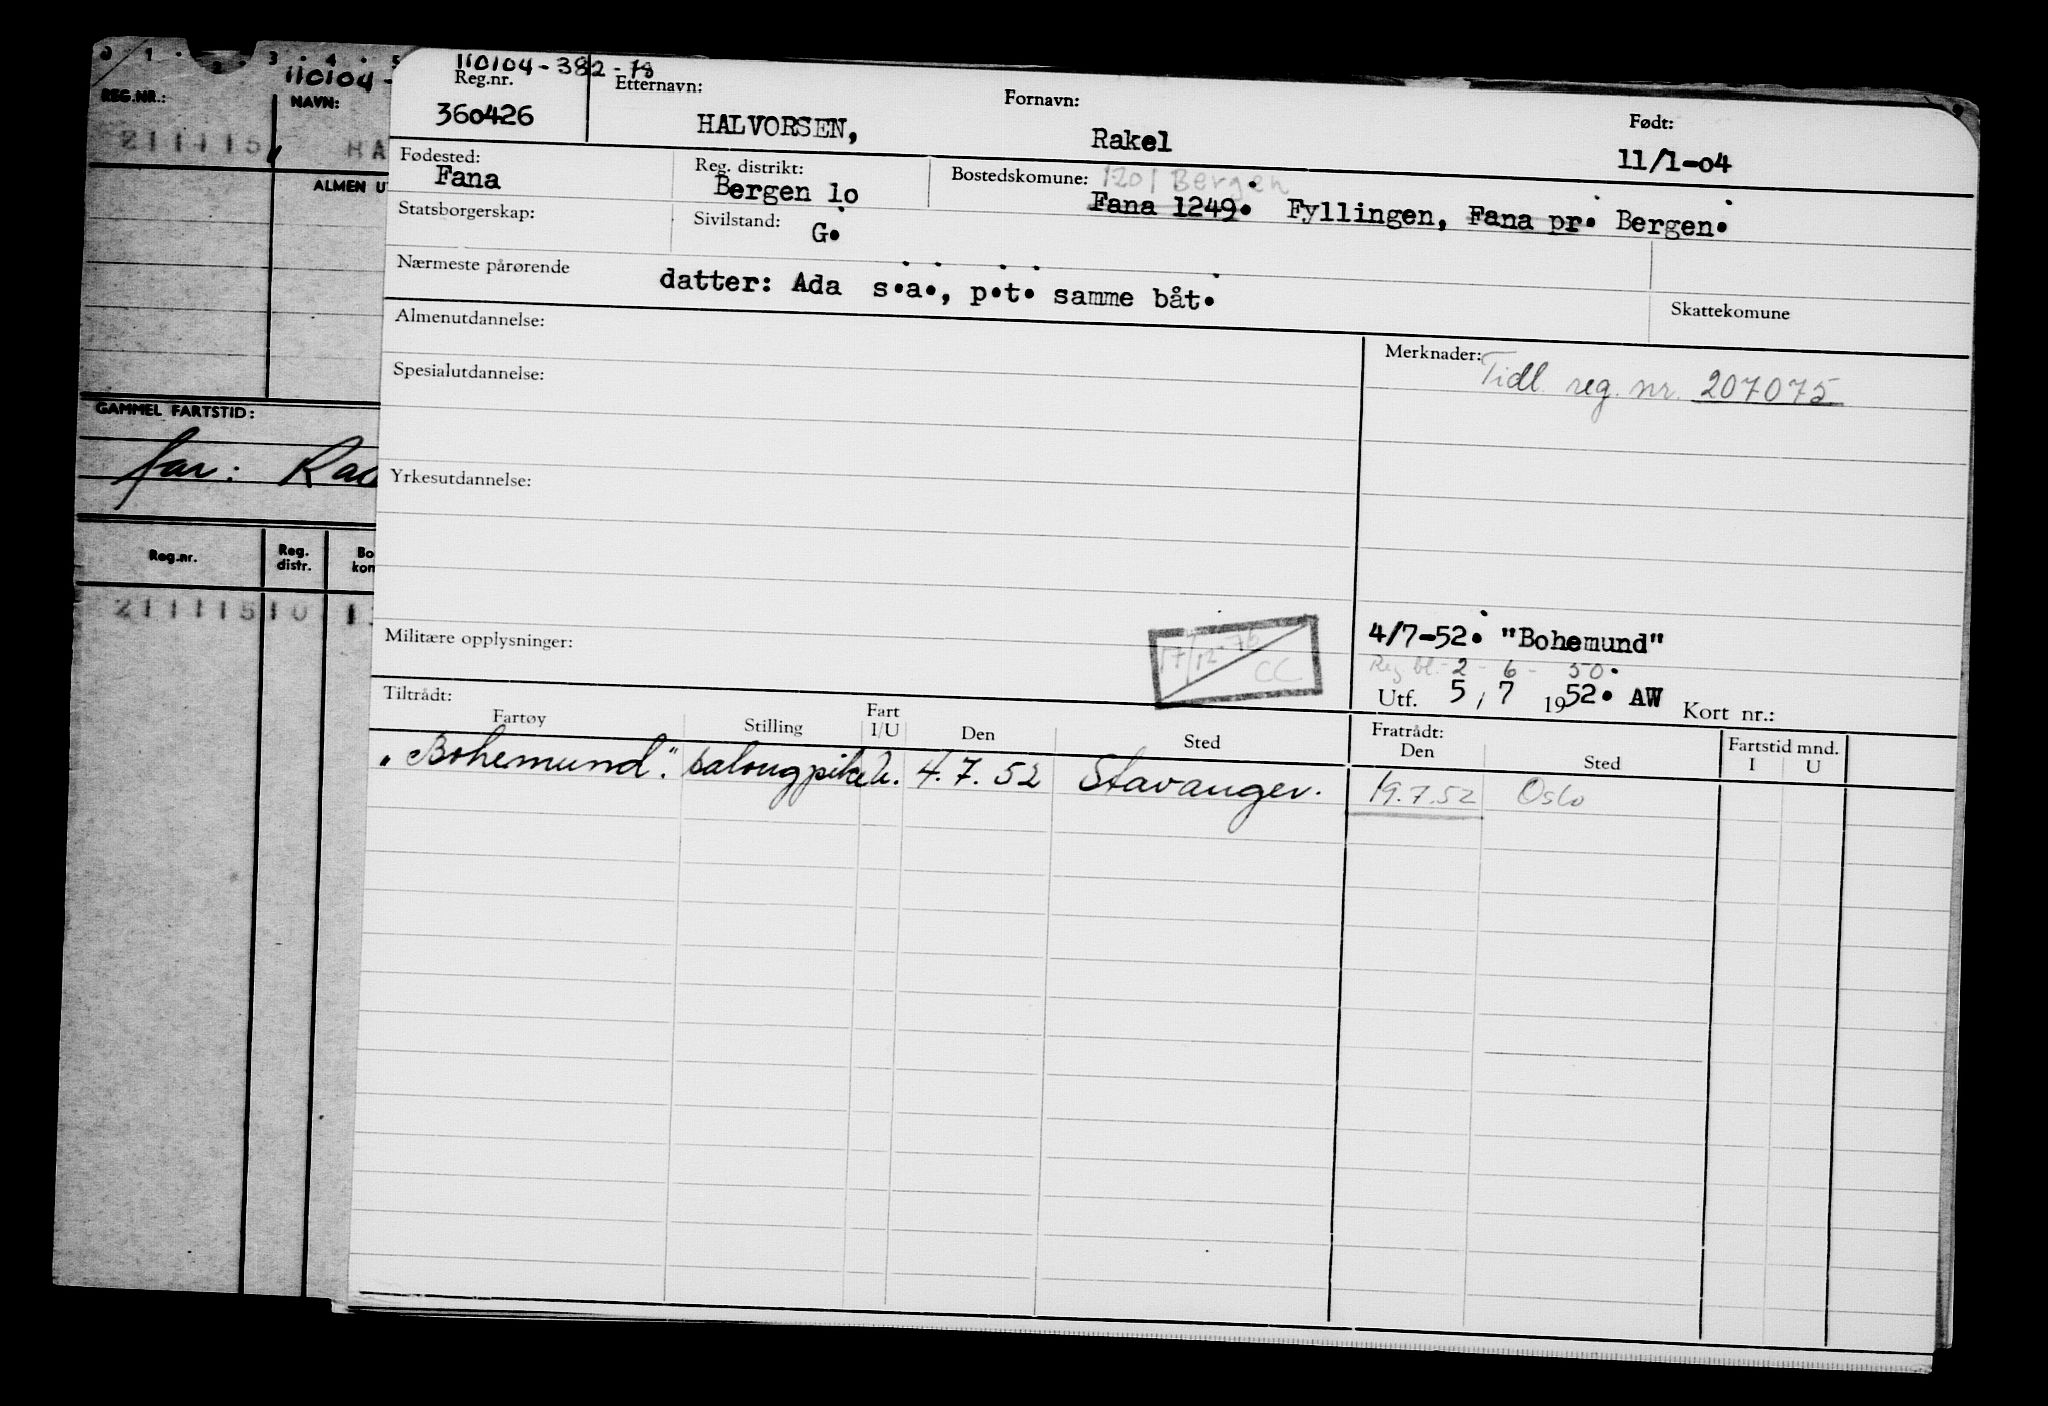 0 1 2 3 4 5
110104-
REG.NR.: NAVN:
211115 HA
ALMEN U
GAMMEL FARTSTID:
far: Ra
Reg.nr. Reg. distr. Bo kon
211115 10 1
110104-382-18
Reg.nr. Etternavn: Fornavn: Født:
360426 HALVORSEN, Rakel 11/1-04
Fødested: Reg. distrikt: Bostedskomune: 1201 Bergen
Fana Bergen 1o Fana 1249. Fyllingen, Fana pr. Bergen.
Statsborgerskap: Sivilstand: G.
Nærmeste pårørende datter: Ada s.a., p.t. samme båt.
Skattekomune
Almenutdannelse: Merknader: Tidl. reg. nr. 207075
Spesialutdannelse:
Yrkesutdannelse:
Militære opplysninger: 17/12-76 CC
4/7-52. "Bohemund"
Reg.bl.- 2 - 6 - 50.
Utf. 5 / 7 1952. AW Kort nr.:
Tiltrådt: Fratrådt: Fartstid mnd.
Fartøy Stilling Fart I/U Den Sted Den Sted I U
"Bohemund". salongpike u. 4.7.52 Stavanger. 19.7.52 Oslo